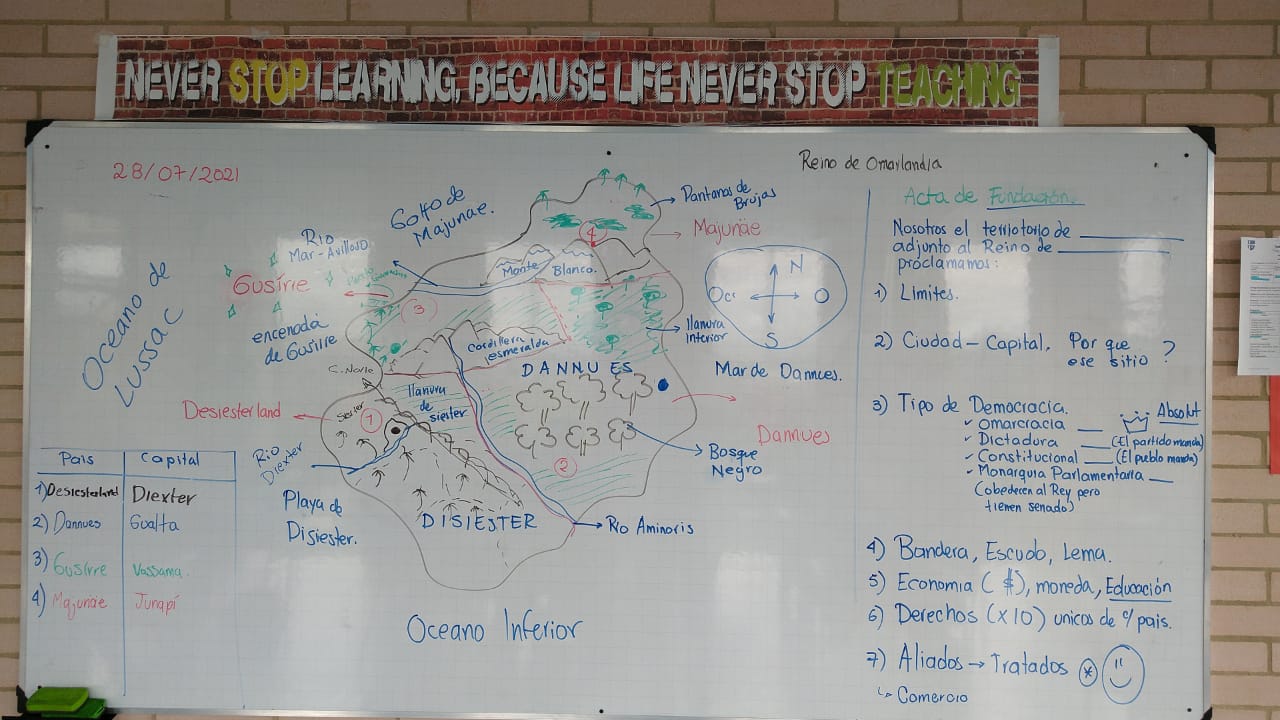 NEVER STOP LEARNING, BECAUSE LIFE NEVER STOP TEACHING
28/07/2021
Reino de Omarlandia
Oceano de
Lussac
Golfo de
Majunae.
Rio
Mar-Avilloso
Gusirie
encenada
de Gusirre
Pantanos de
Brujas
Majunäe
4
Monte
Blanco.
3
llanura
Interior
Cordillera
esmeralda
C. Norte
DANNUES
N
Occ
O
S
Mar de Dannces.
Desiesterland
Siester
1
llanura
de
siester
Dannues
Bosque
Negro
2
Rio
Diexter
Playa de
Disiester.
DISIESTER
Rio Aminoris
Oceano Inferior
Pais Capital
1) Desiesterland Diexter
2) Dannues Gualta
3) Gusirre Vassama.
4) Majunae Junapí
Acta de Fundación.
Nosotros el territorio de
adjunto al Reino de
proclamamos:
1) Limites.
2) Ciudad-Capital. Por que
ese sitio ?
3) Tipo de Democracia.
✓ Omarcracia Absolut
✓ Dictadura (El partido manda)
✓ Constitucional (El pueblo manda)
✓ Monarquia Parlamentaria
(obedecen al Rey pero
tienen senado)
4) Bandera, Escudo, Lema.
5) Economia ($), moneda, Educación
6) Derechos (x10) unicos de c/ pais.
7) Aliados → Tratados *
↳ Comercio